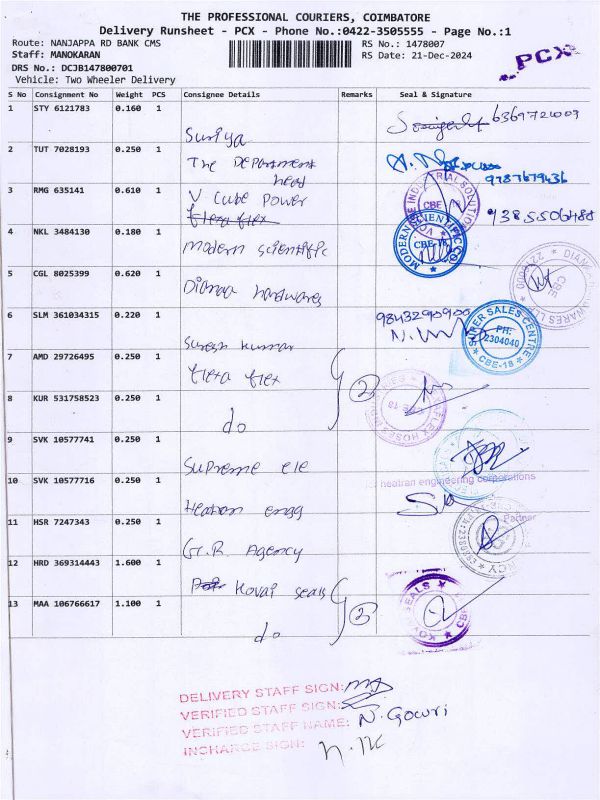 THE PROFESSIONAL COURIERS, COIMBATORE
Delivery Runsheet - PCX - Phone No.:0422-3505555 - Page No.:1
Route: NANJAPPA RD BANK CMS RS No.: 1478007
Staff: MANOKARAN RS Date: 21-Dec-2024
PCX
DRS No.: DCJB147800701
Vehicle: Two Wheeler Delivery
S No Consignment No Weight PCS Consignee Details Remarks Seal & Signature
1 STY 6121783 0.160 1 Suriya
2 TUT 7028193 0.250 1 The Department head 9787679436
3 RMG 635141 0.610 1 V Cube Power
flexa flex
4 NKL 3484130 0.180 1 Modern scientific
MODERN SCIENTIFIC CO CBE-18
5 CGL 8025399 0.620 1 Dianaa hardwares
6 SLM 361034315 0.220 1 Suresh Kumar
SUPER SALES CENTRE PH: 2304040 CBE-18
7 AMD 29726495 0.250 1 flexa flex 2
8 KUR 531758523 0.250 1 do
9 SVK 10577741 0.250 1 Supreme ele
10 SVK 10577716 0.250 1 Heatron engg
heatran engineering corporations
Partner
11 HSR 7247343 0.250 1 G.R. Agency
12 HRD 369314443 1.600 1 Kovai seals
13 MAA 106766617 1.100 1 do
KOVAI SEALS CBE
DELIVERY STAFF SIGN:
VERIFIED STAFF SIGN:
VERIFIED STAFF NAME: N. Gowri
INCHARGE SIGN: